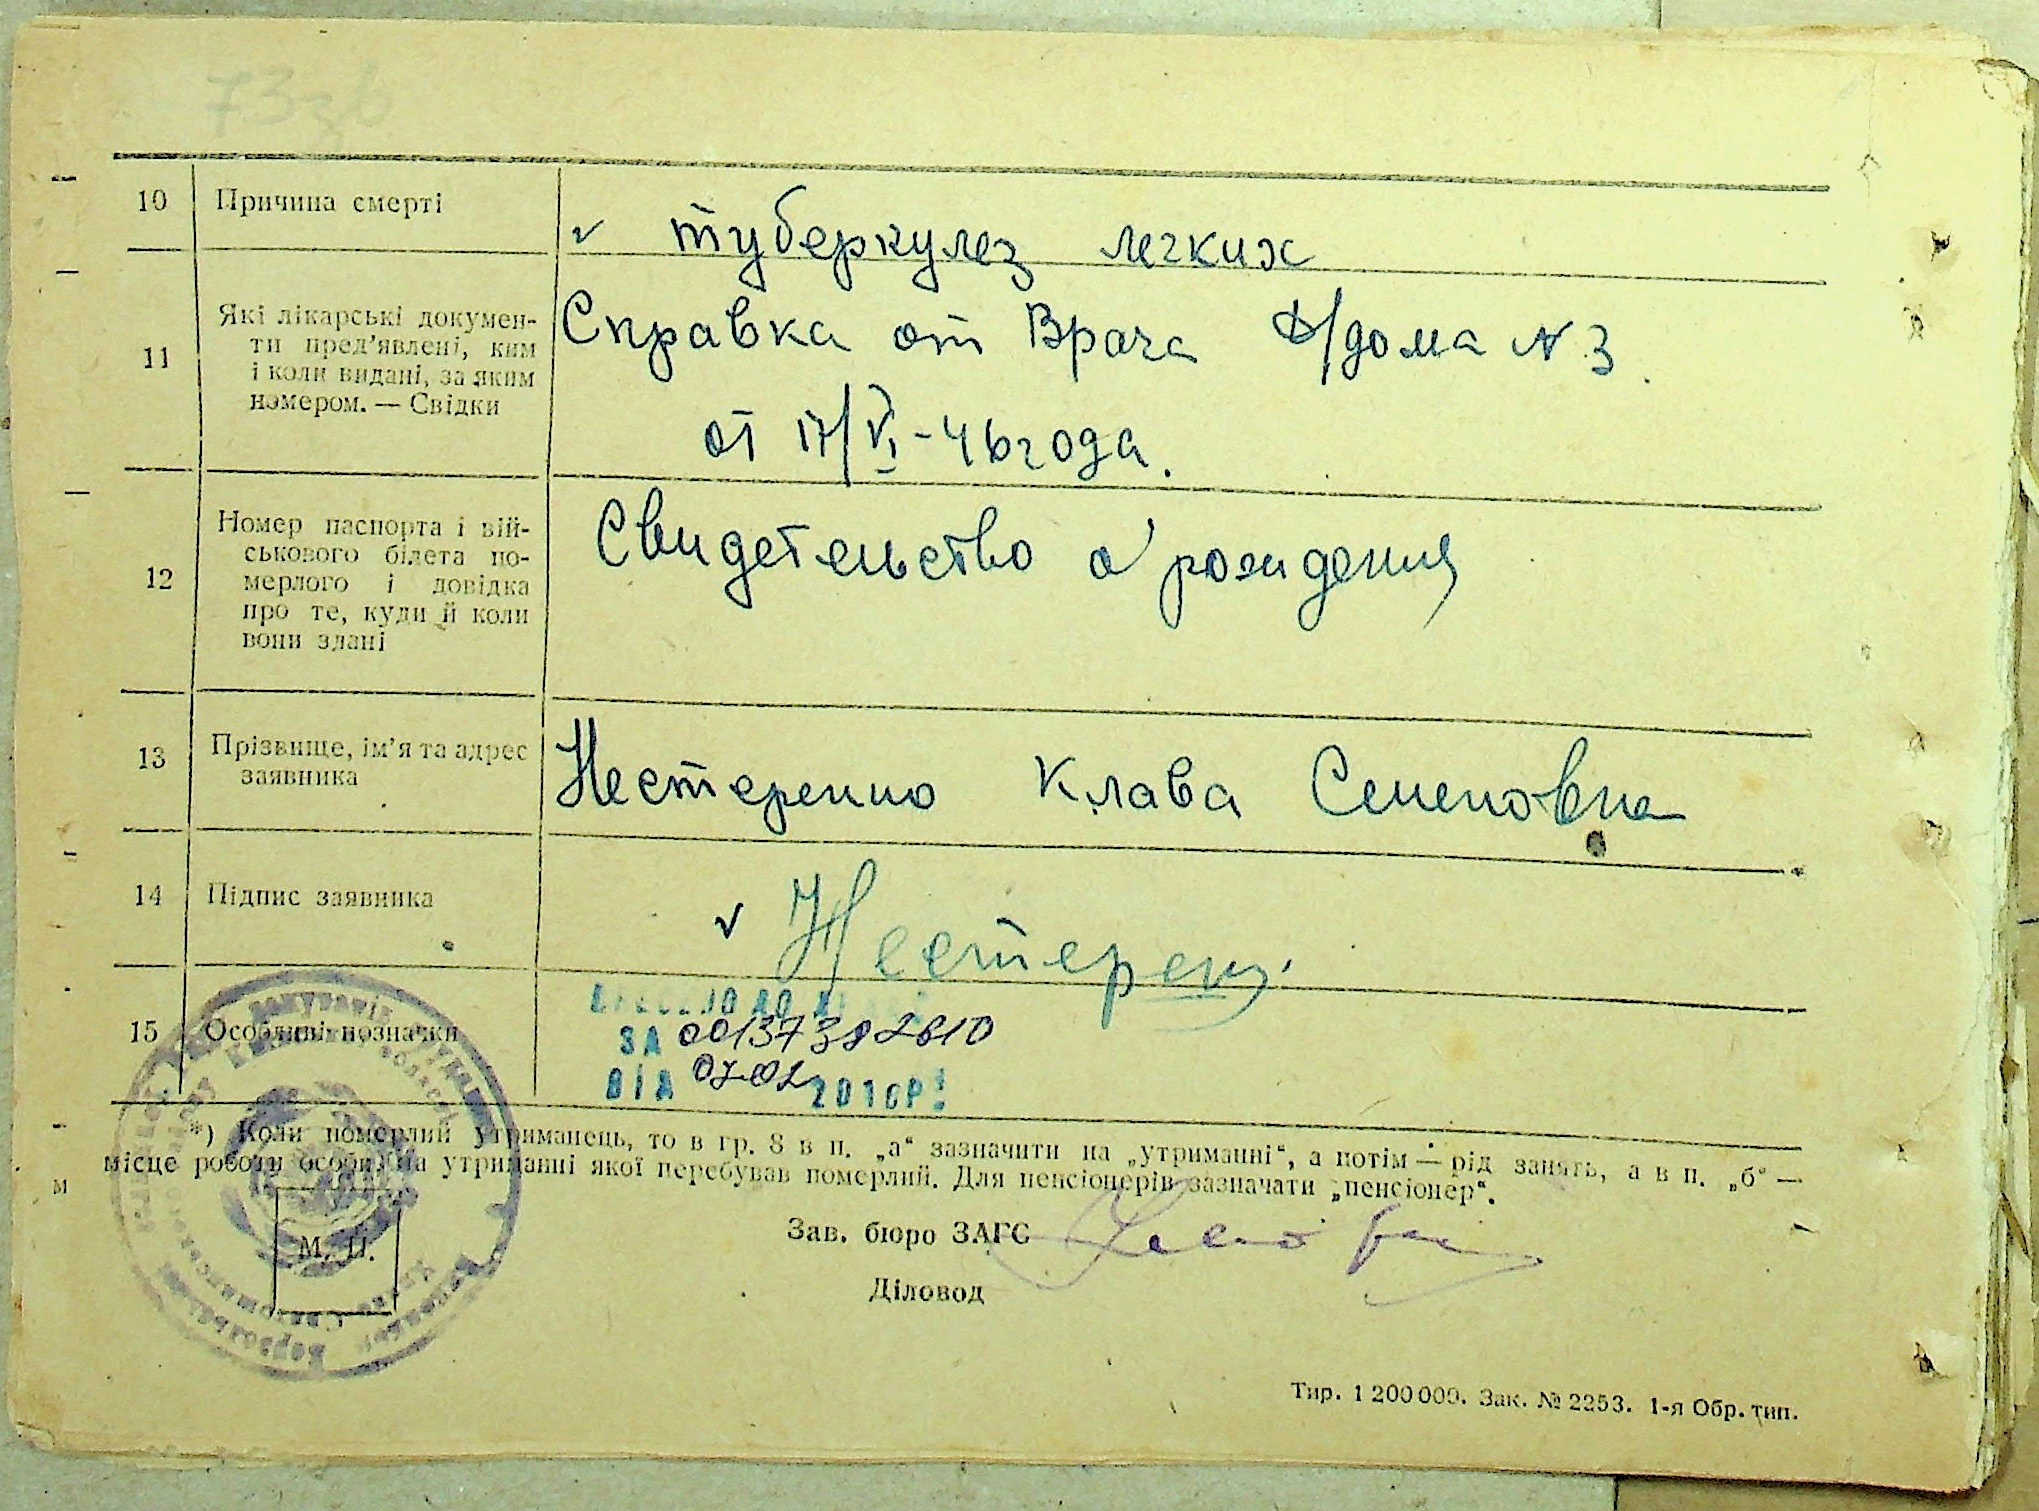 73зв
10 Причина смерті
туберкулез легких
11 Які лікарські докумен-
ти пред'явлені, ким
і коли видані, за яким
номером. — Свідки
Справка от Врача Д/дома N 3
от 17/VI - 46 года.
12 Номер паспорта і вій-
ськового білета по-
мерлого і довідка
про те, куди й коли
вони здані
Свидетельство о рождения
13 Прізвище, ім'я та адрес
заявника
Нестеренко Клава Семеновна
14 Підпис заявника
Нестерен
15 Особливі позначки
ДО
ЗА 00137382610
ВІД 07.02 2010Р!
*) Коли померлий утриманець, то в гр. 8 в п. „а“ зазначити на „утриманні“, а потім — рід занять, а в п. „б“ —
місце роботи особи, на утриманні якої перебував померлий. Для пенсіонерів зазначати „пенсіонер“.
М. П.
Зав. бюро ЗАГС
Діловод
Тир. 1 200 000. Зак. № 2253. 1-я Обр. тип.